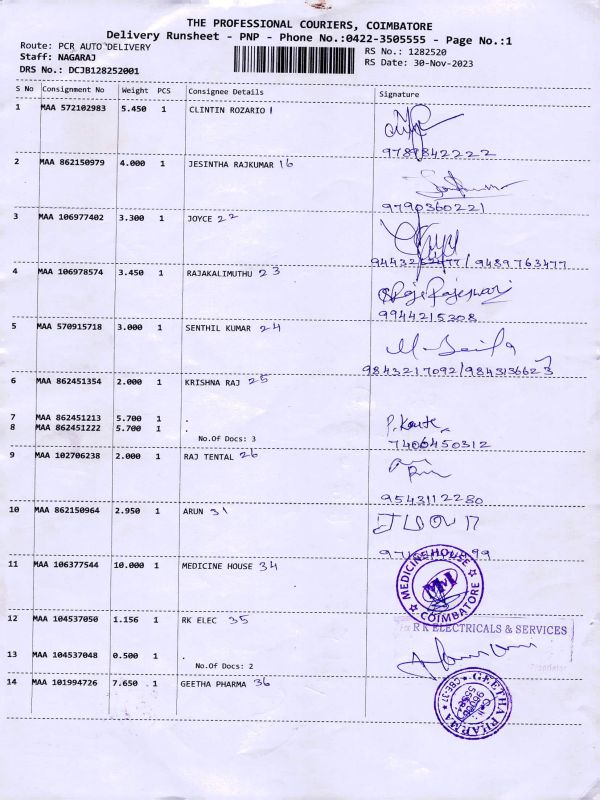 THE PROFESSIONAL COURIERS, COIMBATORE
Delivery Runsheet - PNP - Phone No.:0422-3505555 - Page No.:1
Route: PCR AUTO DELIVERY
RS No.: 1282520
Staff: NAGARAJ
RS Date: 30-Nov-2023
DRS No.: DCJB128252001
S No Consignment No Weight PCS Consignee Details Signature
1 MAA 572102983 5.450 1 CLINTIN ROZARIO 1
9789842222
2 MAA 862150979 4.000 1 JESINTHA RAJKUMAR 16
9790360221
3 MAA 106977402 3.300 1 JOYCE 22
/ 9489763477
4 MAA 106978574 3.450 1 RAJAKALIMUTHU 23
Rajeswari
9944215308
5 MAA 570915718 3.000 1 SENTHIL KUMAR 24
9843217092/9843136623
6 MAA 862451354 2.000 1 KRISHNA RAJ 25
7 MAA 862451213 5.700 1 .
8 MAA 862451222 5.700 1 .
No.Of Docs: 3
7406450312
9 MAA 102706238 2.000 1 RAJ TENTAL 26
9543112280
10 MAA 862150964 2.950 1 ARUN 31
11 MAA 106377544 10.000 1 MEDICINE HOUSE 34
MEDICINE HOUSE
COIMBATORE
12 MAA 104537050 1.156 1 RK ELEC 35
For R K ELECTRICALS & SERVICES
13 MAA 104537048 0.500 1 .
No.Of Docs: 2
Proprietor
14 MAA 101994726 7.650 1 GEETHA PHARMA 36
GEETHA PHARMA
Cell: